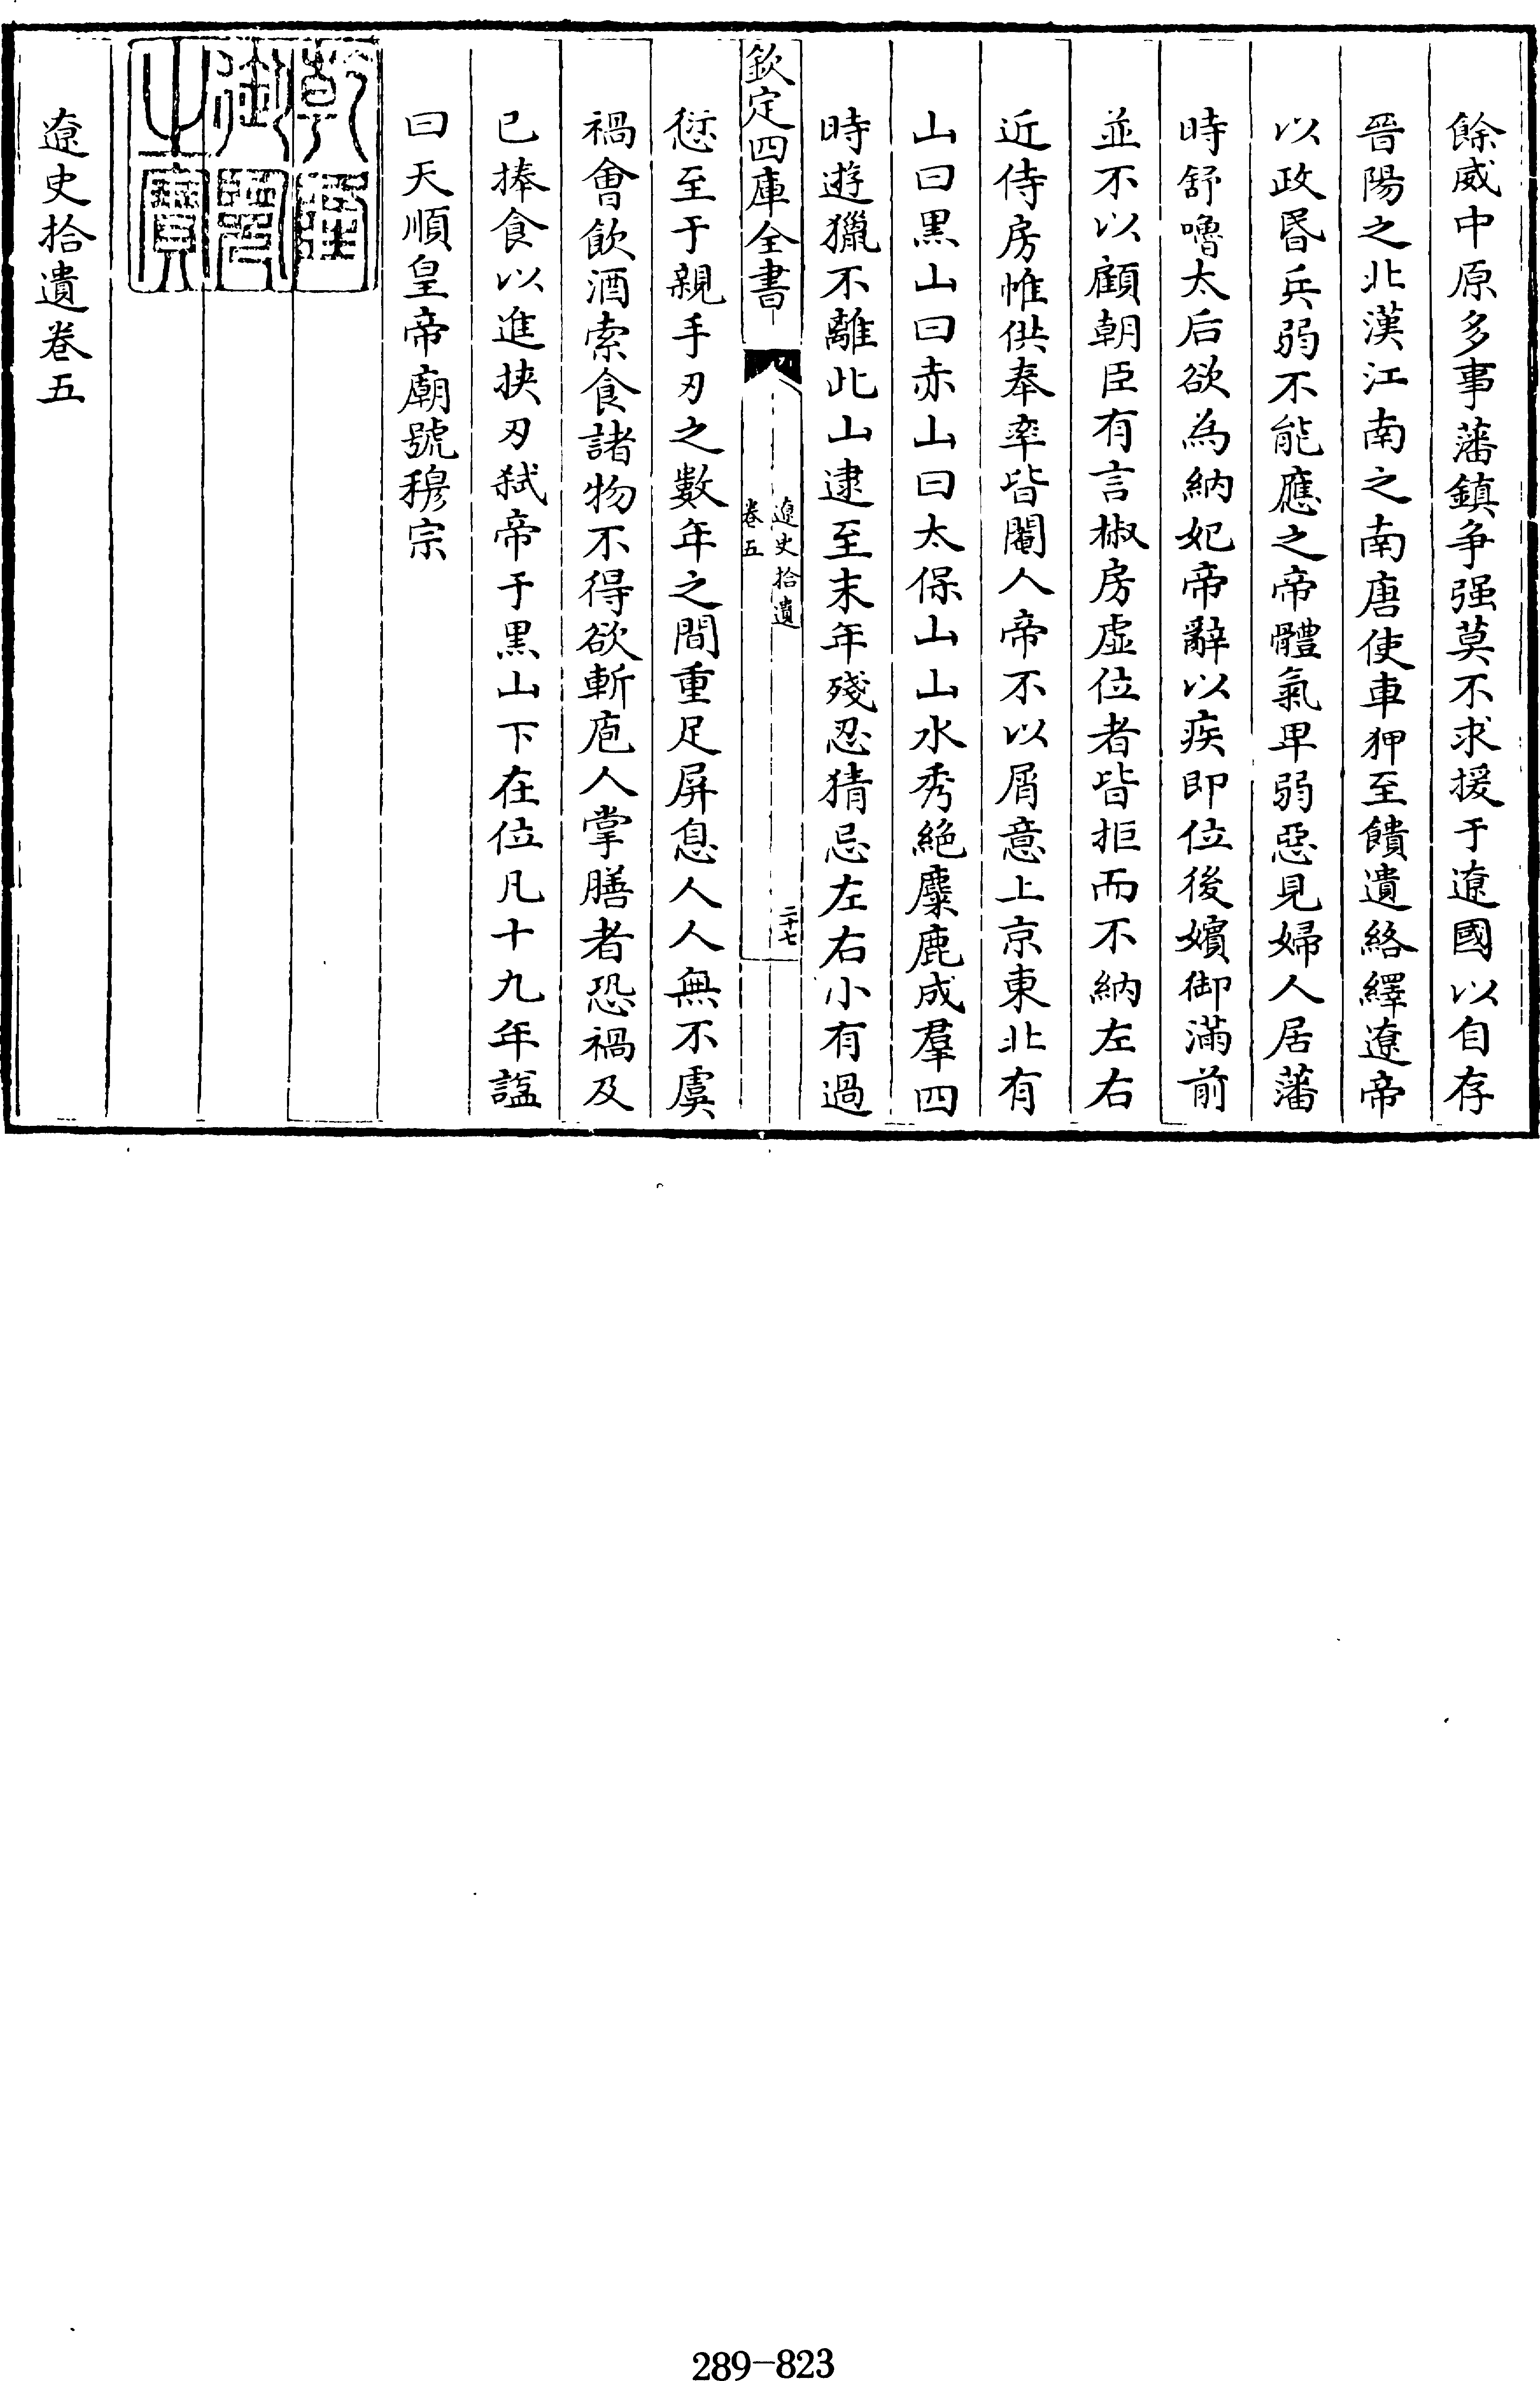 餘威中原多事藩鎮争强莫不求援于遼國以自存
晉陽之北漢江南之南唐使車狎至饋遺絡繹遼帝
以政昬兵弱不能應之帝體氣卑弱惡見婦人居藩
時舒嚕太后欲為納妃帝辭以疾即位後嬪御滿前
並不以顧朝臣有言椒房虚位者皆拒而不納左右
近侍房帷供奉率皆閹人帝不以屑意上京東北有
山曰黒山曰赤山曰太保山山水秀絶麋鹿成羣四
時遊獵不離此山逮至末年殘忍猜忌左右小有過
欽定四庫全書
遼史拾遺
卷五
二十七
愆至于親手刃之數年之間重足屏息人人無不虞
禍會飲酒索食諸物不得欲斬庖人掌膳者恐禍及
已捧食以進挟刃弑帝于黒山下在位凡十九年諡
曰天順皇帝廟號穆宗
乾隆御覽之寳
遼史拾遺卷五
289-823